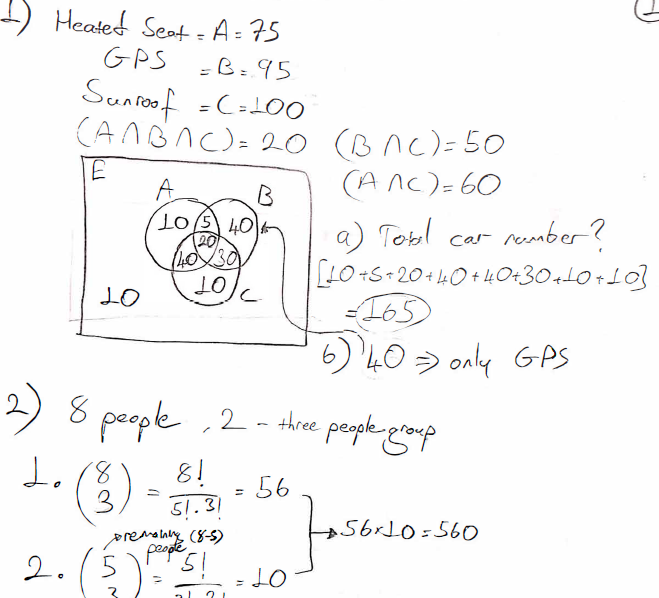 1) Heated Seat = A = 75
GPS = B = 95
Sunroof = C = 100
(A∩B∩C) = 20 (B∩C) = 50
(A∩C) = 60
E
A B
10 5 40
20
40 30
10 C
10
a) Total car number?
[10+5+20+40+40+30+10+10]
= 165
b) 40 ⇒ only GPS
2) 8 people, 2 - three people group
1. (8 3) = 8! / 5!.3! = 56
56x10 = 560
remaining (8-3) people
2. (5 3) = 5! / = 10